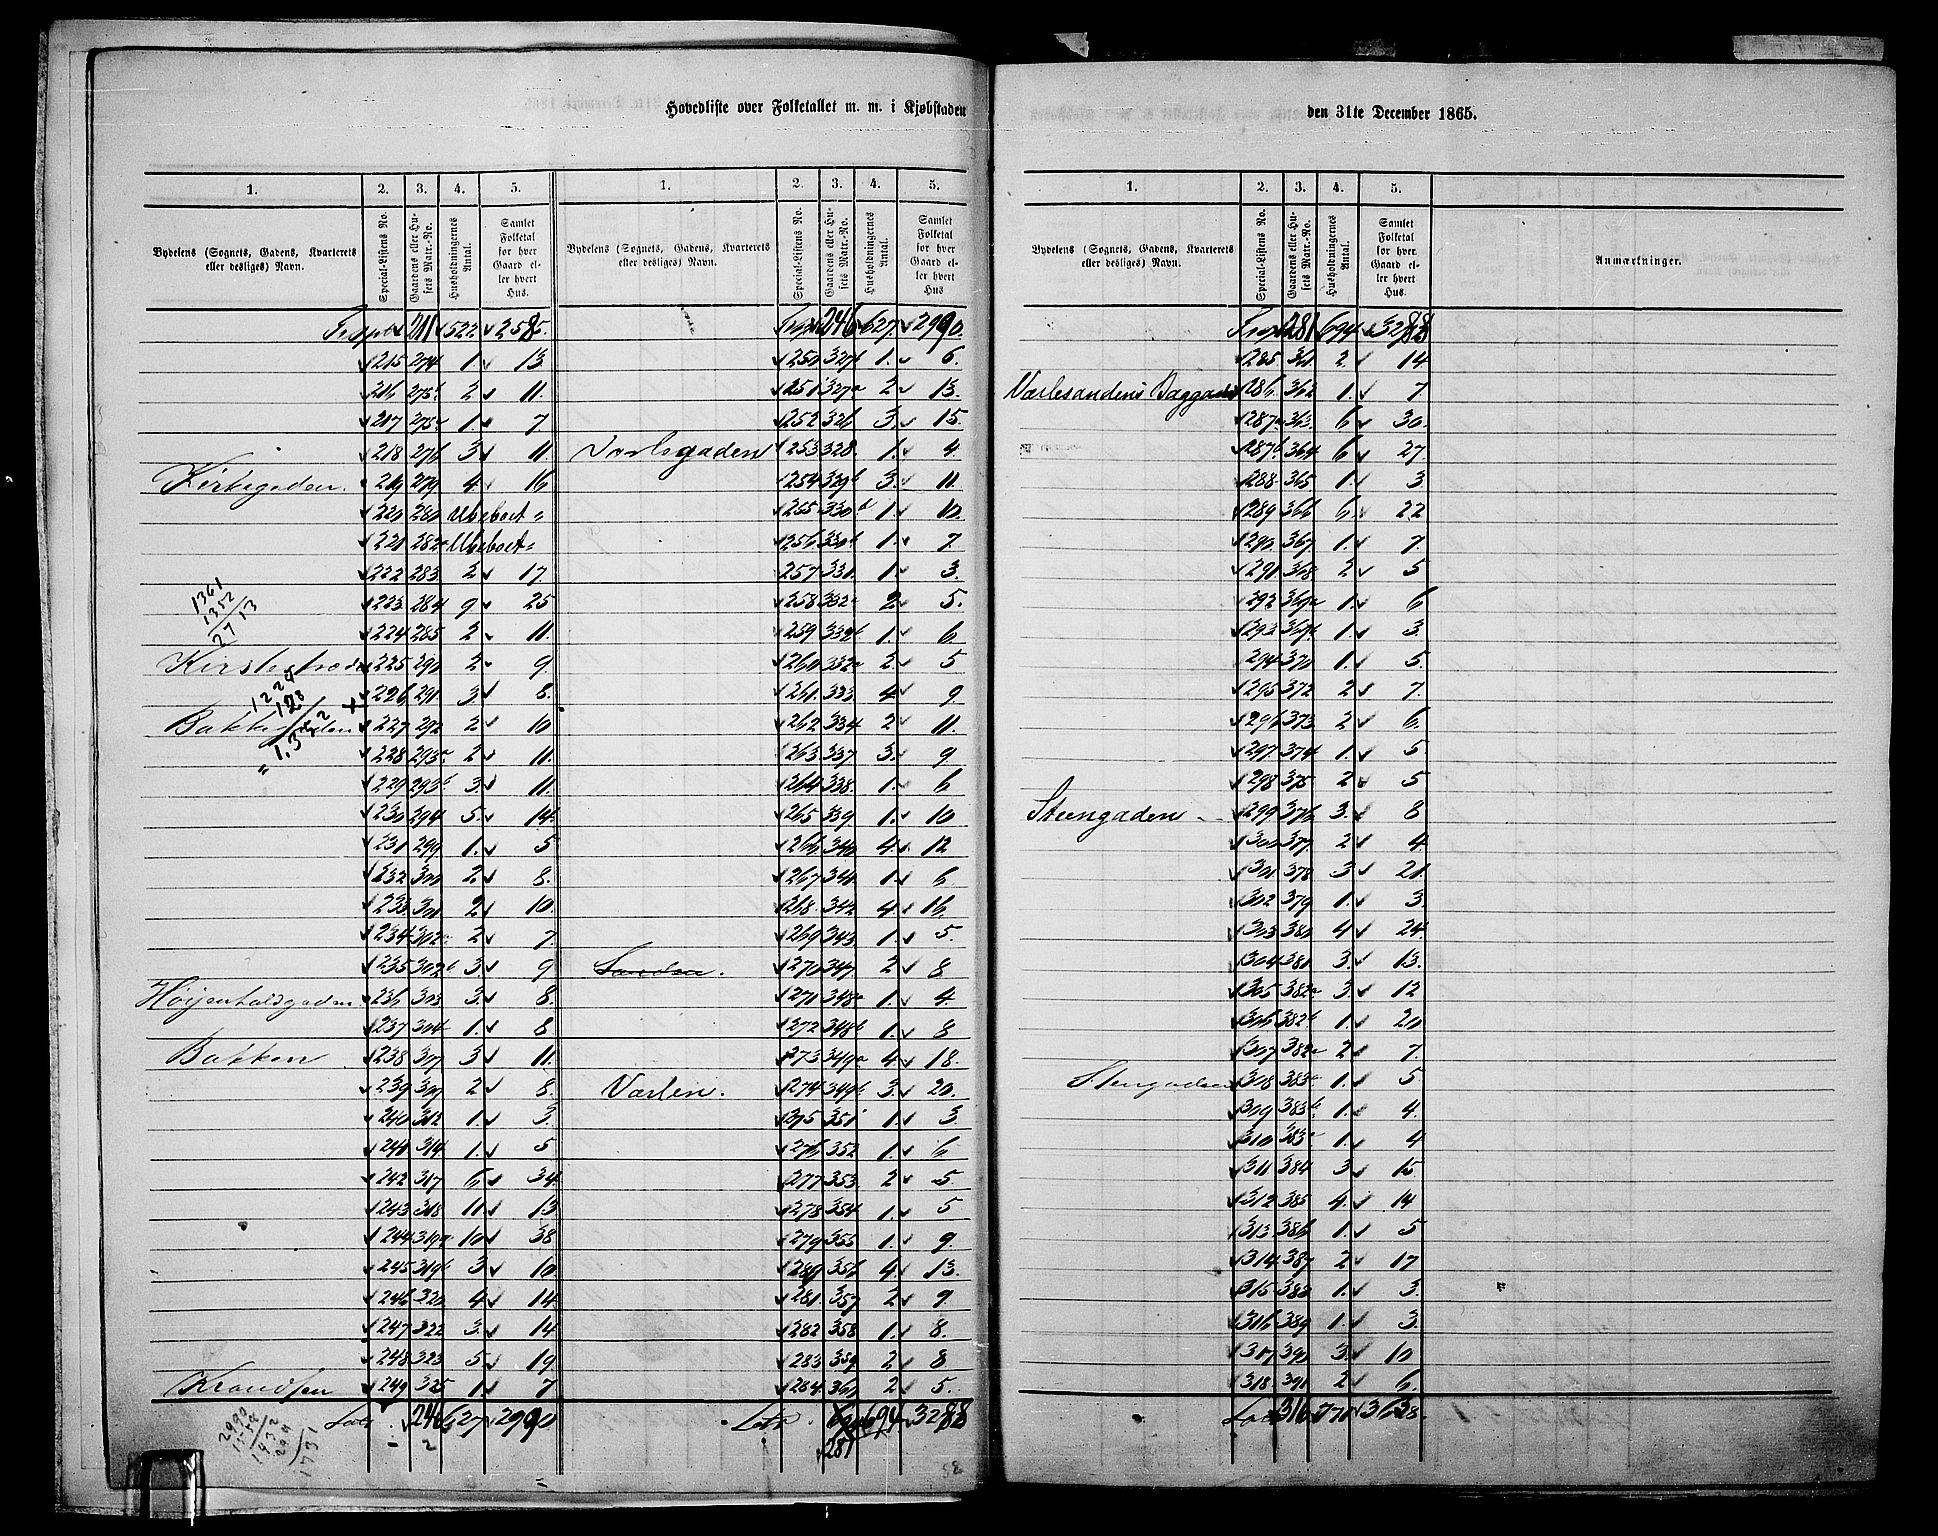 Hovedliste over Folketallet m. m. i Kjøbstaden
1. 2. 3. 4. 5. 1. 2. 3. 4. 5.
Bydelens (Sognets, Gadens, Kvarterets eller desliges) Navn. Special-Listens No. Gaardens eller Husets Matr.-No. Husholdningernes Antal. Samlet Folketal for hver Gaard eller hvert Hus. Bydelens (Sognets, Gadens, Kvarterets eller desliges) Navn. Special-Listens No. Gaardens eller Husets Matr.-No. Husholdningernes Antal. Samlet Folketal for hver Gaard eller hvert Hus
211 522 2585. 246 627. 2990.
215 274 1. 13. 250 327 1. 6.
216 275b 2 11. 251 327a 2 13.
217 275 1. 7 252 326 3. 15.
218 276 3. 11. 253 328. 1. 4.
Kirkegaden. 219 279 4 16 254 329b 3. 11.
220 280 Ubeboet " 255 330 1. 10.
221 282 Ubeboet " 256 330b 1. 7.
222 283 2 17. 257 331. 1. 3.
1361
1352
2713
223 284 9 25 258 332 2 5.
224 285 2 11. 259 332b 1. 6.
225 290 2 9 260 332a 2. 5
1224
128
1.352
226 291 3 8. 261 333 4 9.
Bakkegaden 227 292 2 10 262 334 2 11.
228 293a 2 11. 263 337 3. 9
229 293b 3. 11. 264 338. 1. 6
230 294 5. 14. 265 339 1. 10
231 299 1. 5 266 340 4 12
232 300 2. 8. 267 341 1. 6
233 301 2 10. 268. 342 4. 16.
234 302a 2 7. 269 343 1. 5.
235 302b 3. 9 270 347 2 8
236 303 3. 8. 271 348a 1. 4.
237 304 1. 8 272 348b 1. 8
Bakken 238 307 3. 11. 273 349a 4 18.
239 309 2 8. Varlen. 274 349b 3. 20.
240 312 1. 3. 275 351 1. 3
241 314 1. 5 276 352 1. 6
242 317 6 34. 277 353 2 5.
243 318 11 13 278 354 1. 5
244 319a 10 38 279 355 1. 9.
245 319b 3 10 280 356 4. 13.
246 320 4 14 281. 357 2 9
247 322 3. 14 282 358 1. 8.
248 323 5. 19 283 359 2 8
249 325 1. 7 284. 360 2 5.
246 627. 2990 694. 3288
281
2990
1432
299
1731
den 31te December 1865.
1. 2. 3. 4. 5.
Bydelens (Sognets, Gadens, Kvarterets eller desliges) Navn. Special-Listens No. Gaardens eller Husets Matr.-No. Husholdningernes Antal. Samlet Folketal for hver Gaard eller hvert Hus. Anmærkninger.
281 694 3288
285 361 2 14
Varlesandens Baggade 286. 362 1. 7
287a 363. 6 30.
287b 364 6 27.
288. 365 1. 3
289 366 6. 22
290. 367 1. 7.
291 368 2 5
292 369a 1. 6
293. 369b 1. 3.
294 370 1. 5.
295 372 2 7.
296 373 2 6.
297. 374 1. 5
298 375 2 5
Steengaden 299 376 3. 8
300 377 2 4
301 378 3 21
302 379 1. 3.
303 380 4 24.
304 381 3. 13.
305 382a 3. 12
306 382b 1. 20
307 382 2 7.
Stengaden 308 383a 1. 5
309 383b 1. 4.
310 383 1. 4
311 384 3 15
312 385 4. 14
313. 386 1. 5
314. 387 2 17
315 388 1. 3.
316 389 1. 3.
317 390 3. 10
318. 391 2 6
316. 771 3638.